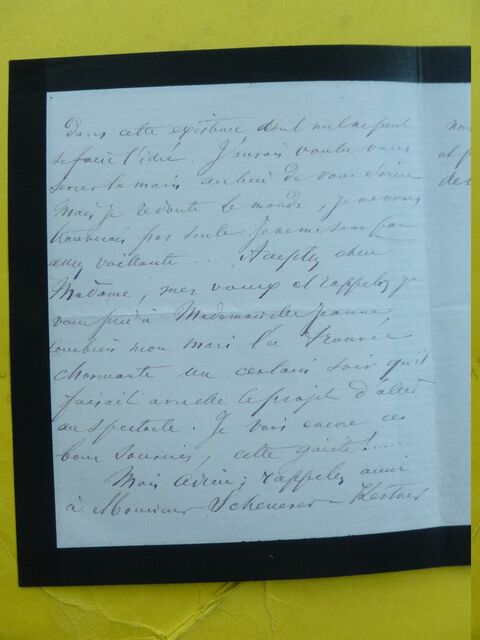 Dans cette existence dont nul ne peut
se faire l'idée. J'aurais voulu vous
serrer la main au lieu de vous écrire
Mais je redoute le monde, je ne vous
trouverais pas seule je ne me sens pas
assez vaillante... Acceptez chère
Madame, mes voeux et rappelez je
vous prie à Mademoiselle Jeanne,
combien mon mari l'a trouvée
charmante un certain soir qu'il
faisait avec elle le projet d'aller
au spectacle. Je vois encore ces
bons sourires, cette gaieté!.....
Mais adieu; rappelez aussi
à Monsieur Scheurer-Kestner
nou
et p
de v